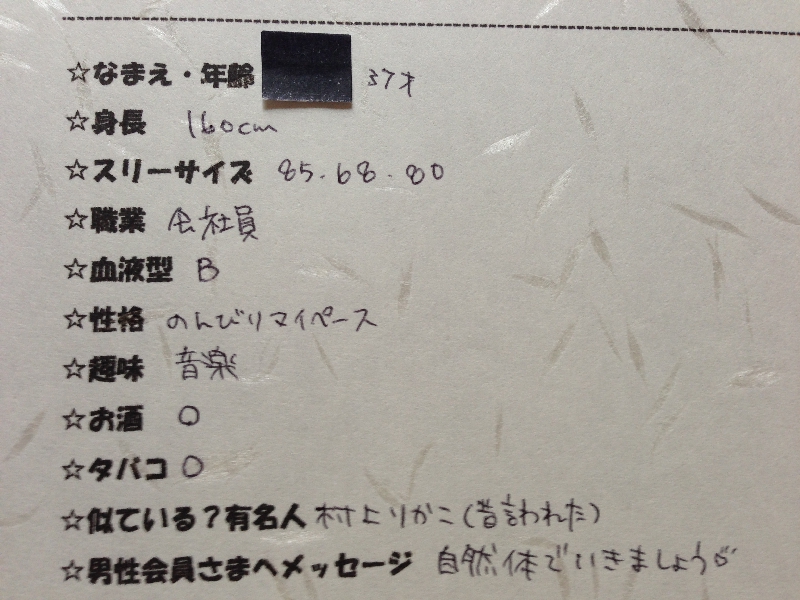 ☆なまえ・年齢 37才
☆身長 160cm
☆スリーサイズ 85.68.80
☆職業 会社員
☆血液型 B
☆性格 のんびりマイペース
☆趣味 音楽
☆お酒 〇
☆タバコ 〇
☆似ている?有名人 村上りかこ(昔言われた)
☆男性会員さまへメッセージ 自然体でいきましょう